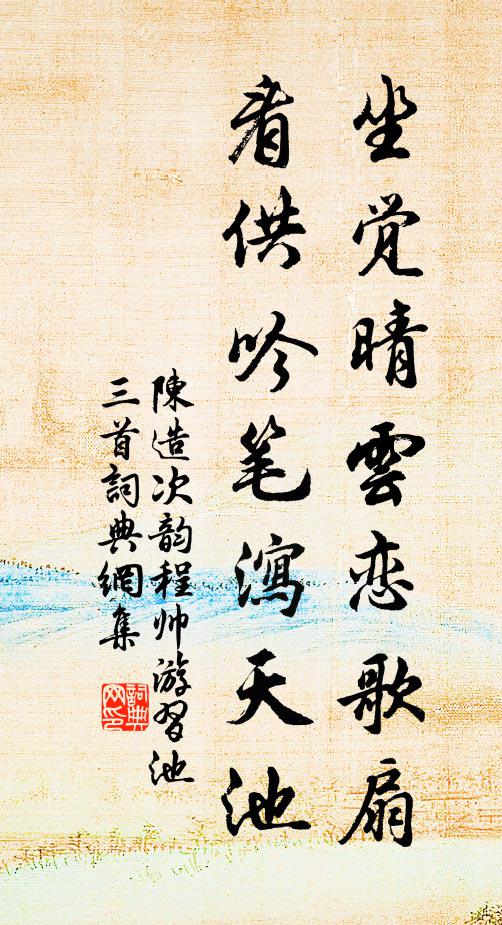 坐觉晴雲恋歌扇
看供吟笔瀉天池
陳造次韵程帅游習池
三首詞典網集
詞典
网印